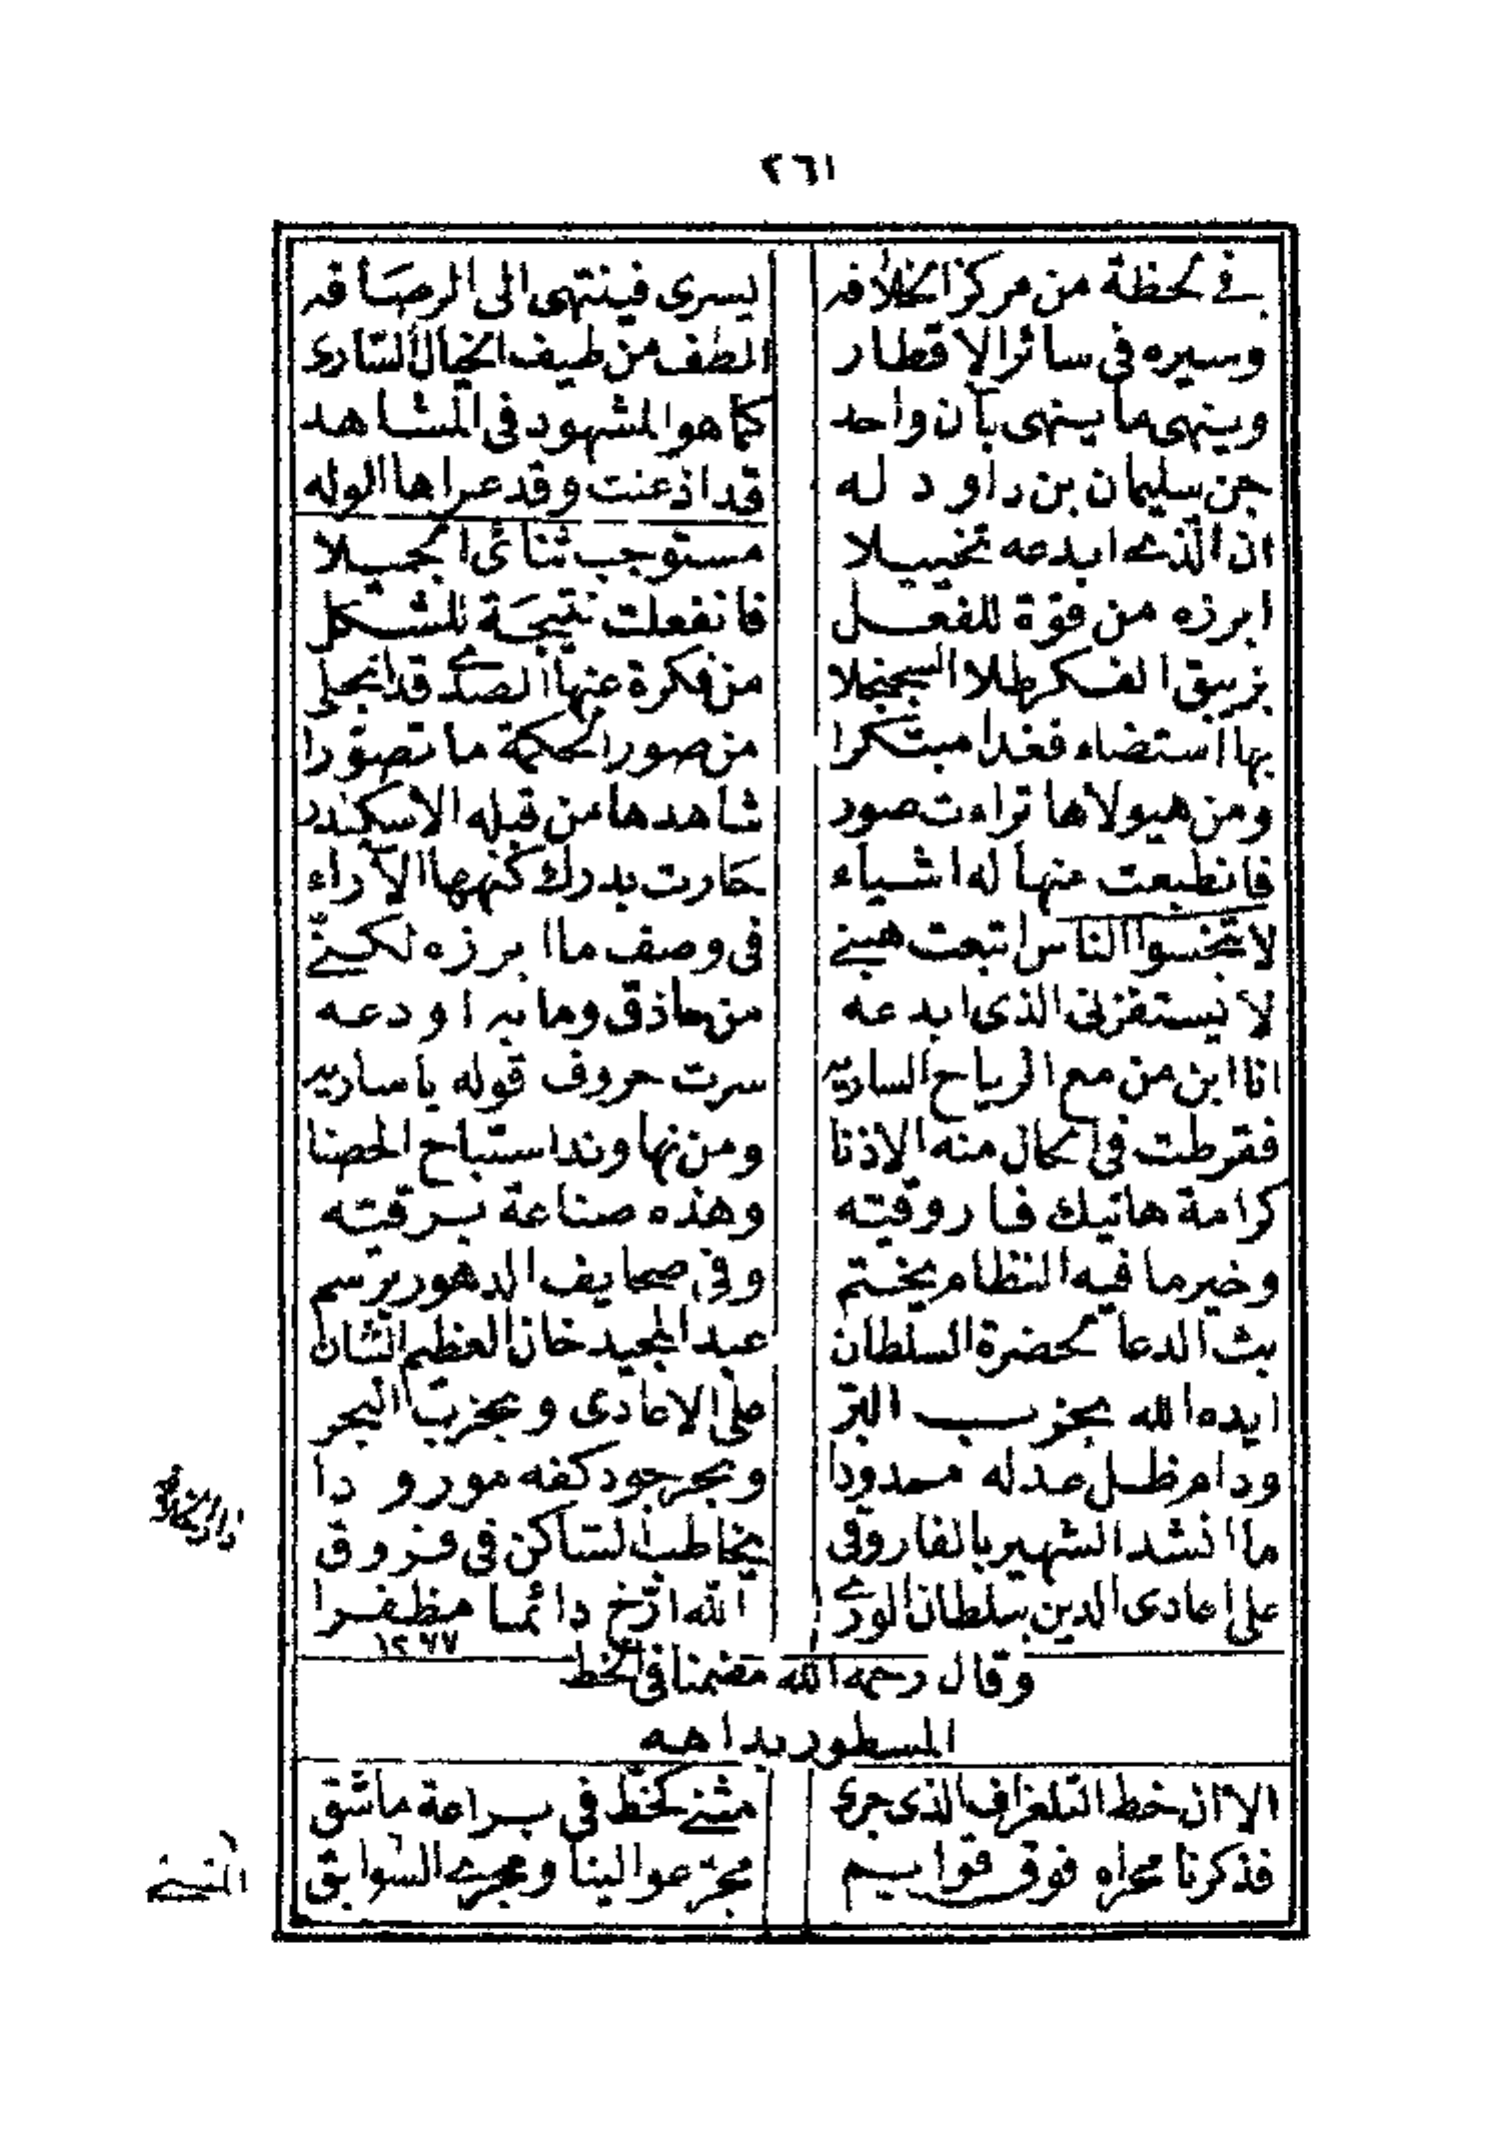 ٢٦١
في لحظة من مركز الخلافه يسرى فينتهى الى الرصافه
وسيره فى سائر الاقطار الطف من طيف الخيال السارى
وينهى ما ينهى بآن واحد كما هو المشهود فى المشاهد
جن سليمان بن داود له قد اذعنت وقد عراها الوله
ان الذى ابدعه تخييلا مستوجب ثنائى الجميلا
ابرزه من قوة للفعل فانفعلت نتيجة للشكل
بزيبق الفكر طلا السجنجلا من فكرة عنها الصدى قد انجلى
بها استضاء فغدا مبتكرا من صور الحكمة ما تصورا
ومن هيولاها تراءت صور شاهدها من قبله الاسكندر
فانطبعت عنها له اشياء حارت بدرك كنهها الآراء
لا تبخسوا الناس اتبعت هينى فى وصف ما ابرزه لكننى
لا يستفزنى الذى ابدعه من حاذق وما به اودعه
انا ابن من مع الرياح الساريه سرت حروف قوله يا ساريه
فقرطت فى الحال منه الاذنا ومن نهاوند استباح الحصنا
كرامة هاتيك فاروقيته وهذه صناعة برقيته
وخير ما فيه النظام يختم وفى صحايف الدهور يرسم
بث الدعا لحضرة السلطان عبد المجيد خان العظيم الشان
ايده الله بحزب البر على الاعادى وبحزب البحر
ودام ظل عدله ممدودا وبحر جود كفه مورودا
ما انشد الشهير بالفاروقى يخاطب الساكن فى فروق
على اعادى الدين سلطان الورى الله ارّخ دائما مظفرا
١٢٦٧
وقال رحمه الله مضمنا فى الخط
المسطور بداهه
الا ان خط التلغراف الذى جرى مشى لخط فى براعة ماشق
فذكرنا مجراه فوق قوايم مجرّ عوالينا ومجرى السوابق